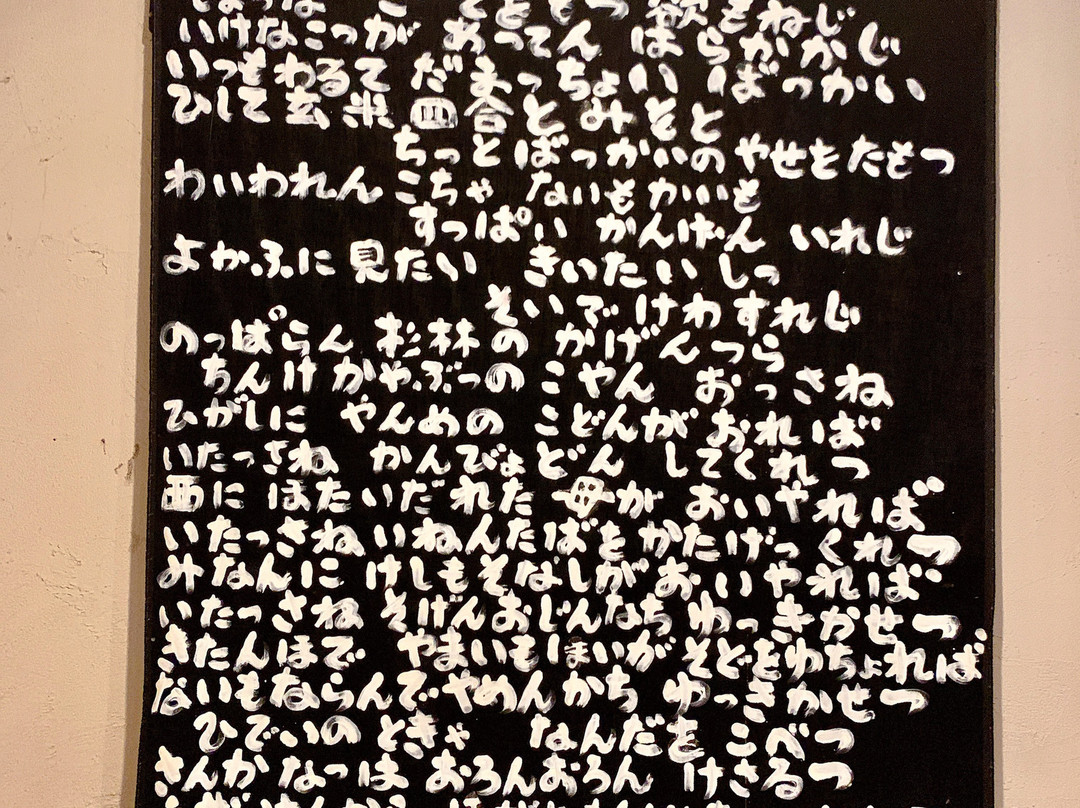 いけなこっが あってん はらかかじ
いっもわるて だまっちょい ばっかい
ひして玄米四合と みそと
ちっとばっかいの やせをたもっ
わいわれんこちゃ ないもかいも
すっぱい がんげん いれじ
よかふに見たい きいたいしっ
そいでけわすれじ
のっぱらん 杉林の かげんつら
ちんけかやぶっの こやん おっさね
ひがしに やんめの こどんがおれば
いたっさね かんびょどん してくれっ
西に ほたいだれた 母が おいやれば
いたっさね いねんたばを かたげっくれっ
みなんに けしもそなしが おいやれば
いたっさね そげんおじんなち ゆっきかせっ
きたんほで やまいもほいが そどをゆちょれば
ないもならんで やめんかち ゆっきかせっ
ひでいの ときゃ なんだを こべっ
さんかなっは おろんおろん けさるっ